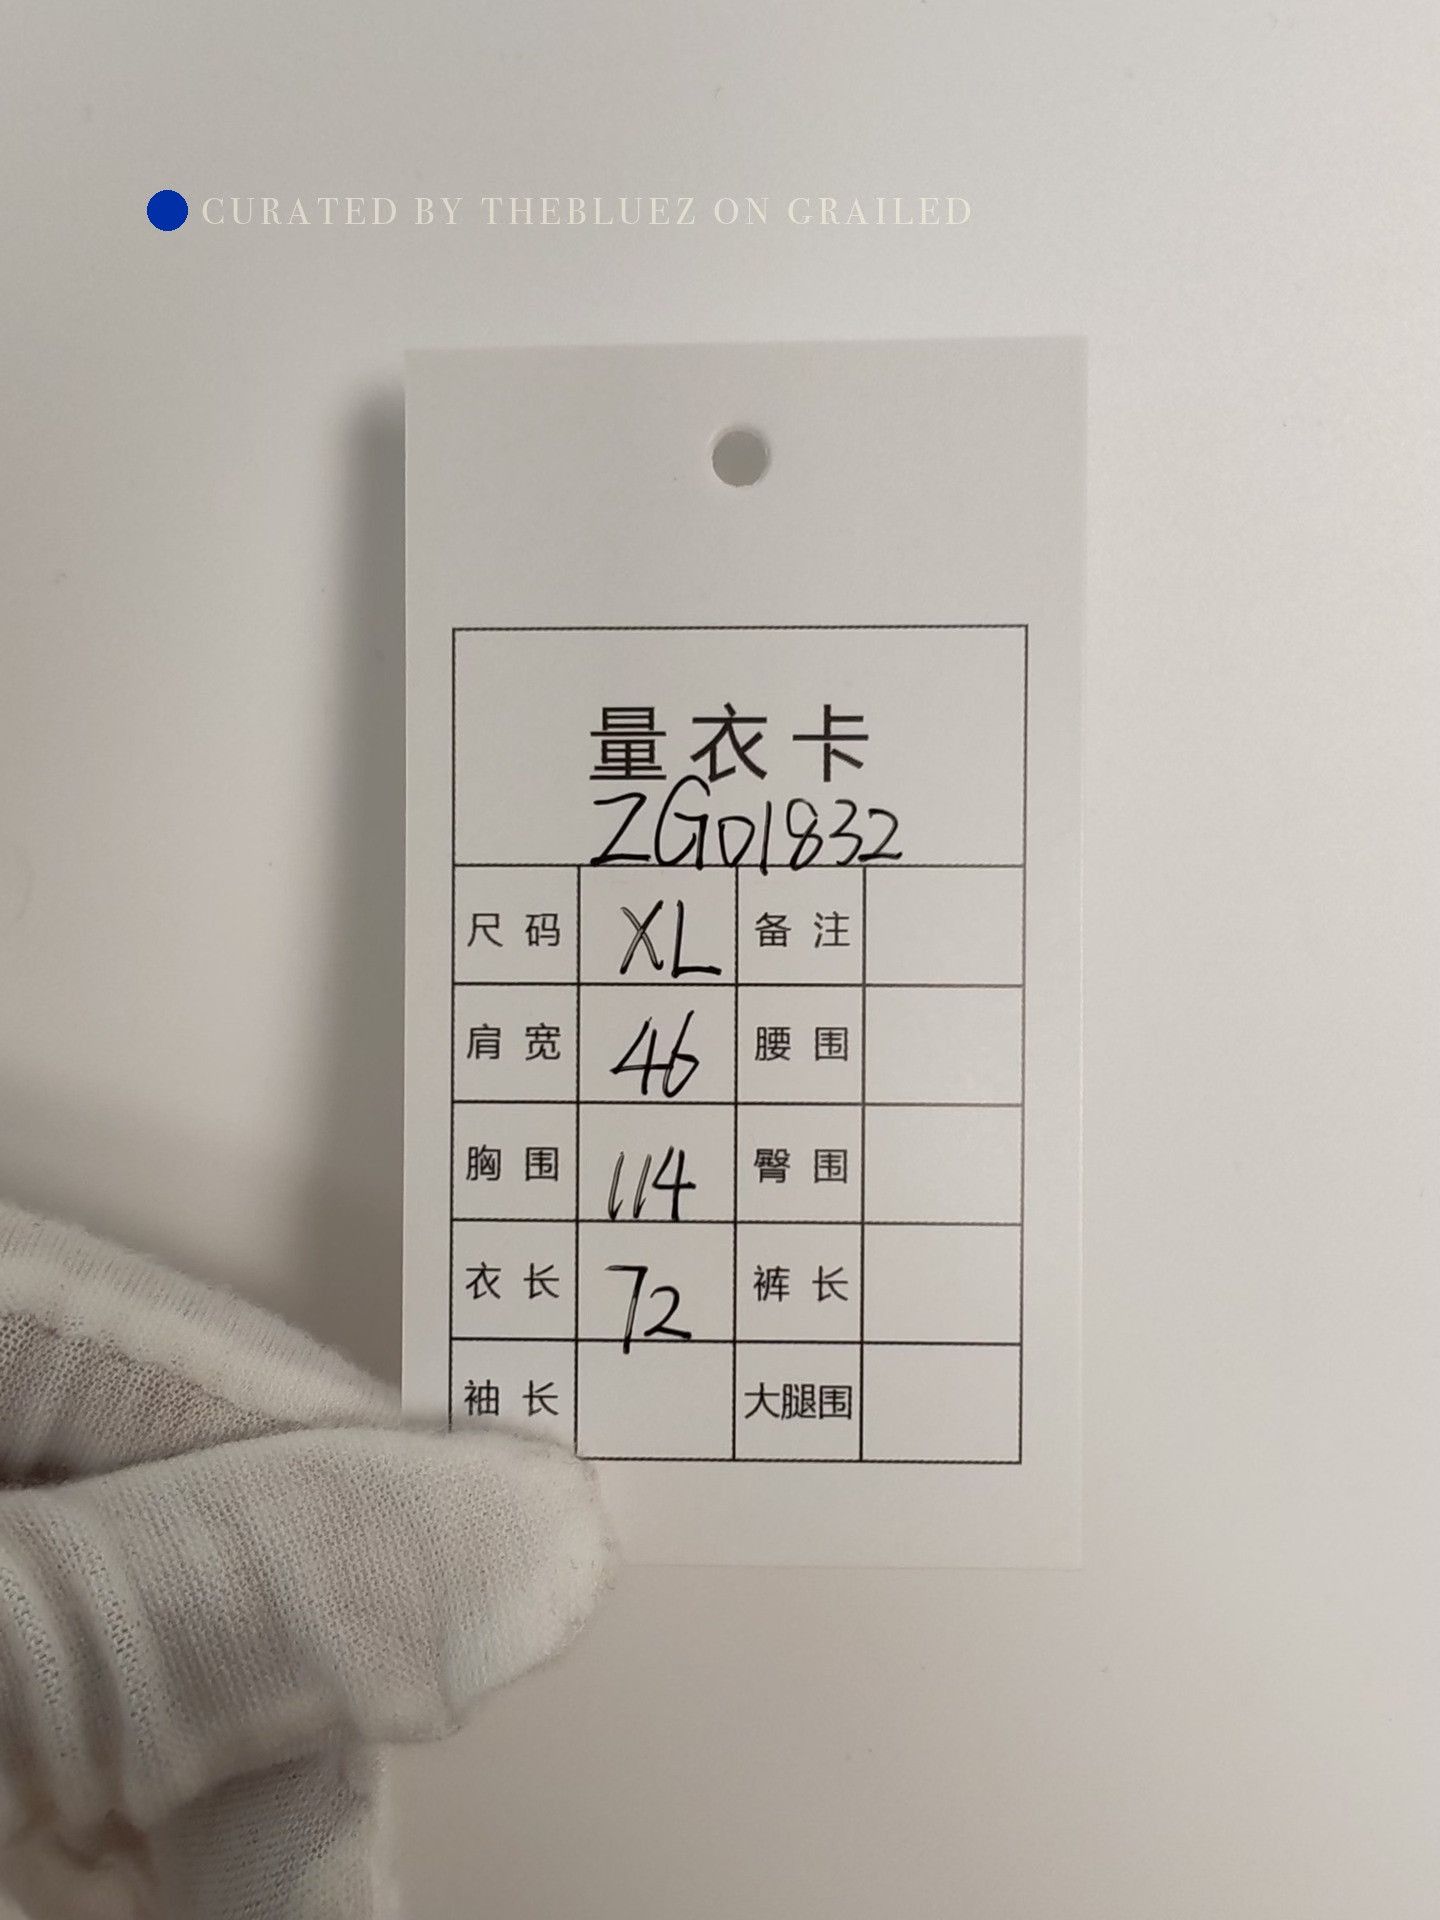 CURATED BY THEBLUEZ ON GRAILED
量衣卡
ZG01832
尺码 XL 备注
肩宽 46 腰围
胸围 114 臀围
衣长 72 裤长
袖长 大腿围